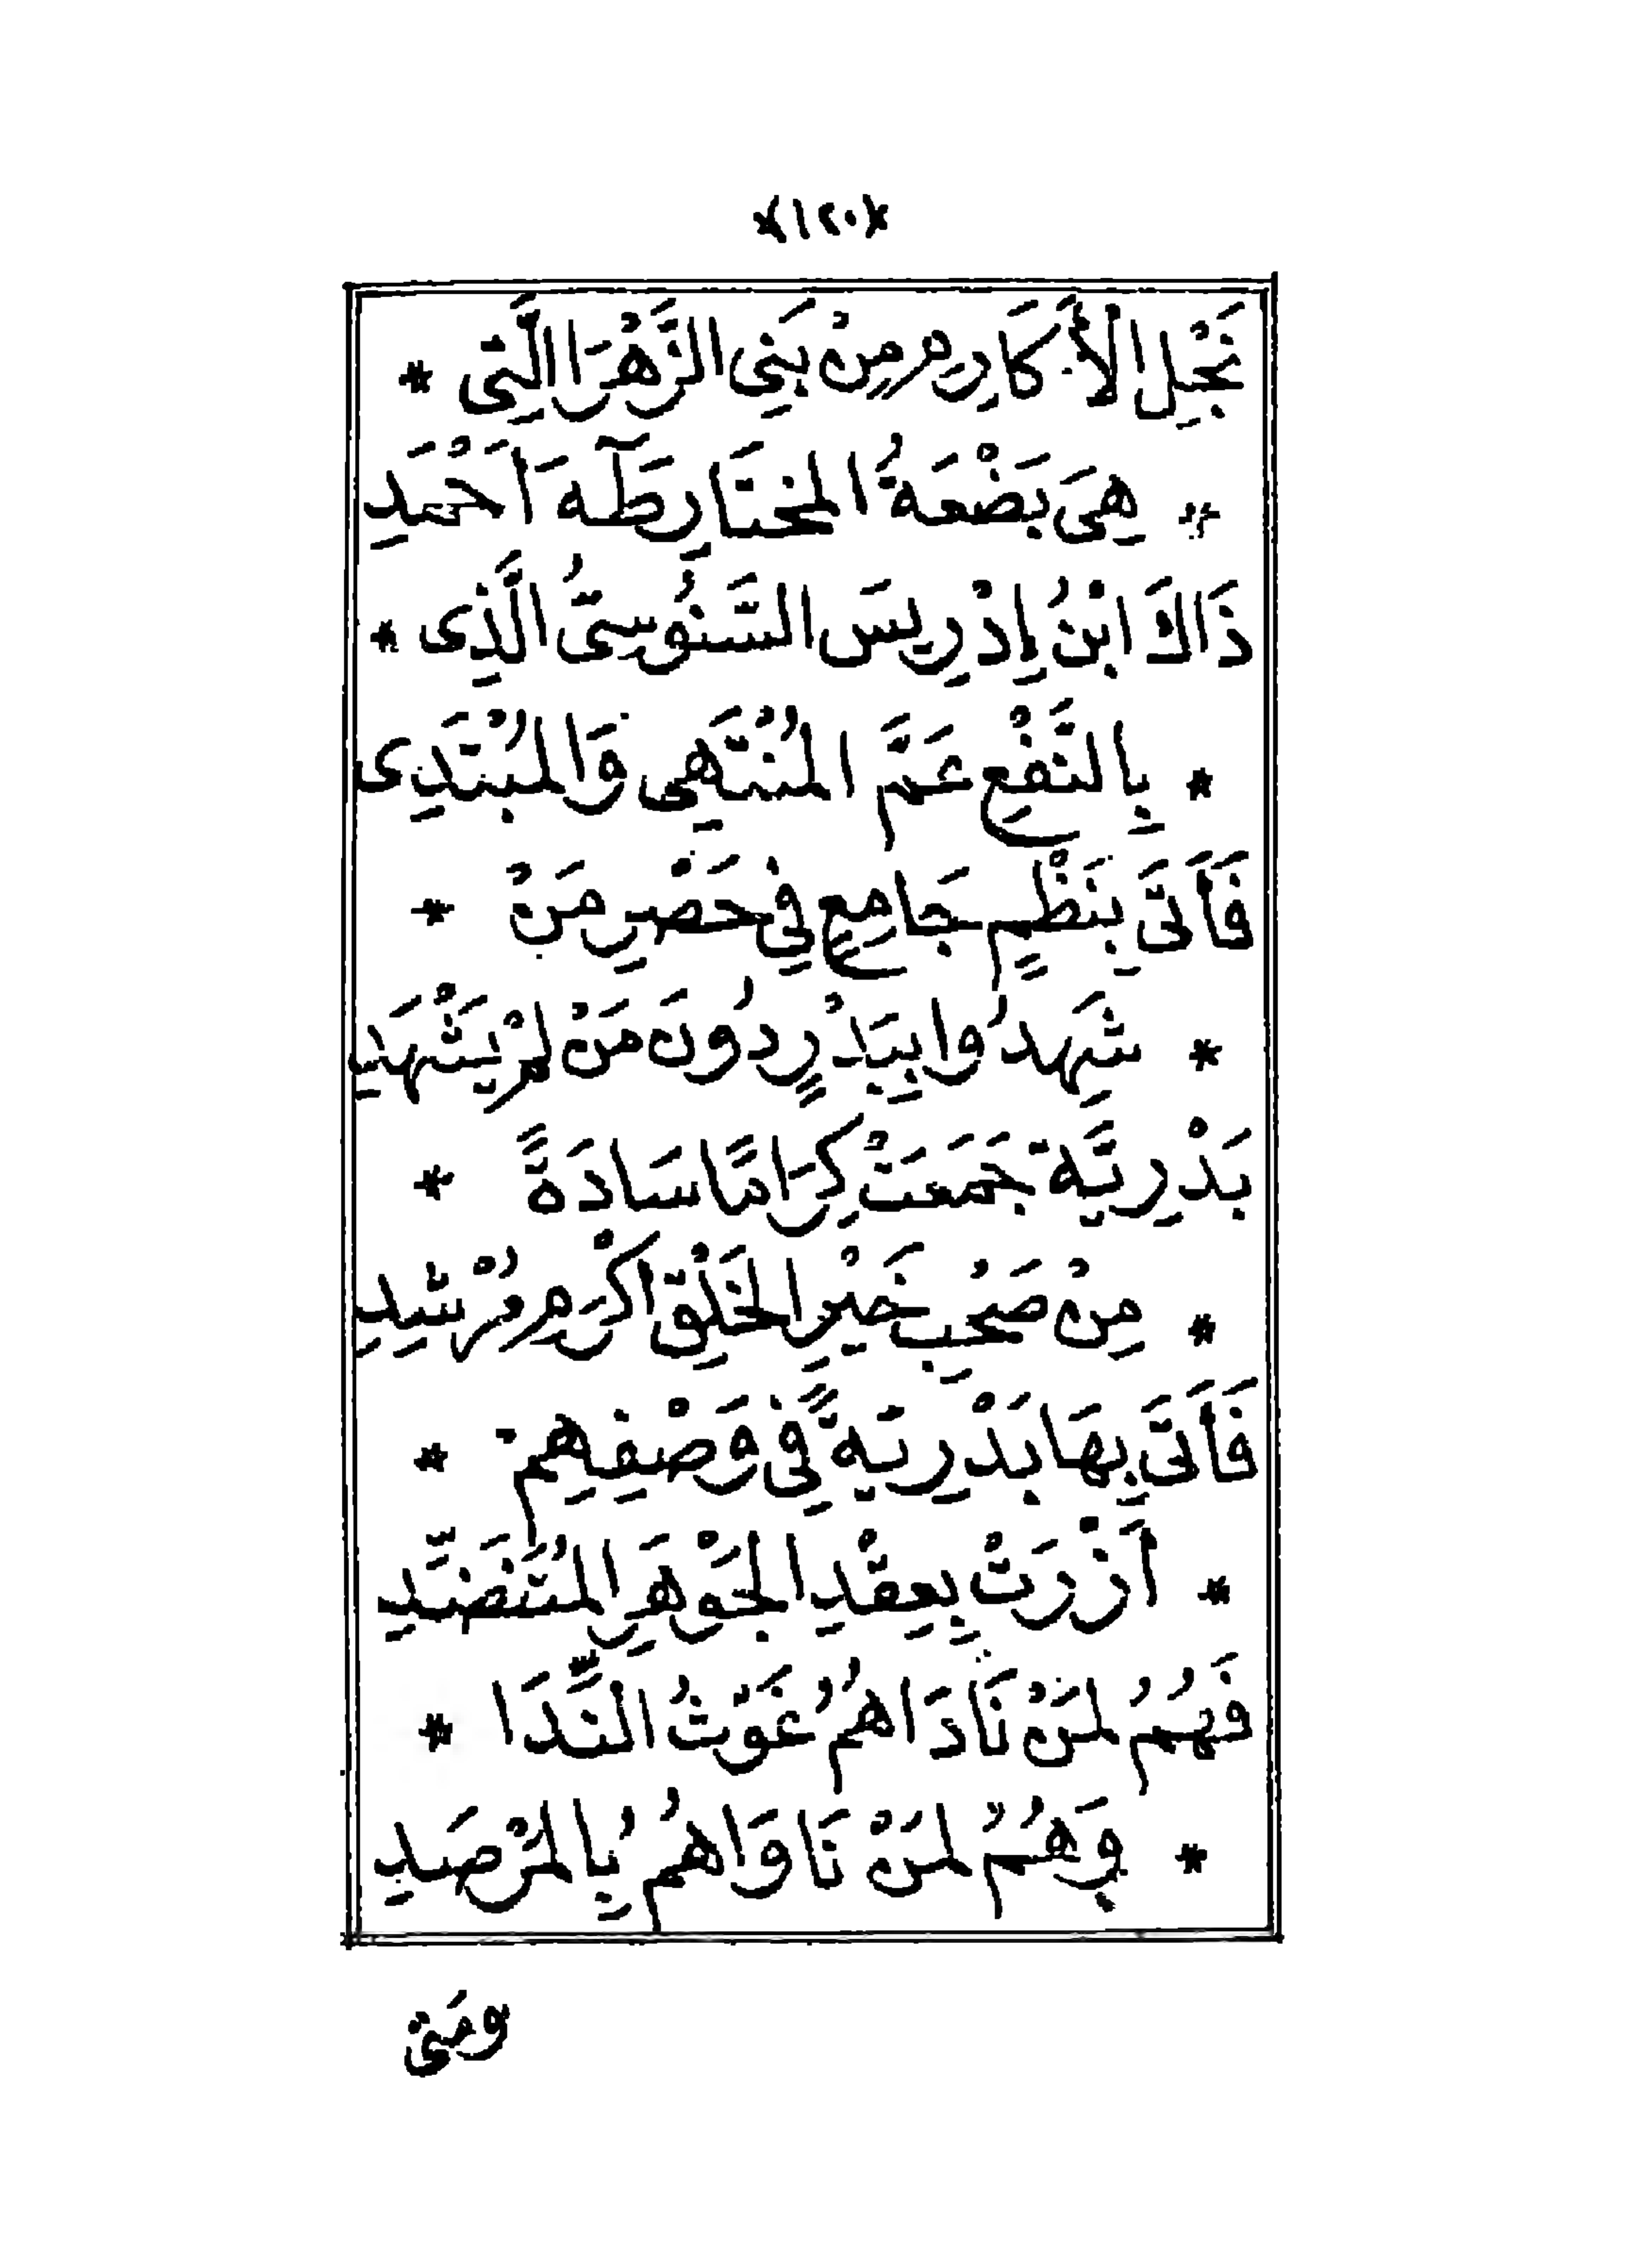 *(١٢٠)*
نَجْلِ الْأَكَارِمِ مِنْ بَنِي الزَّهْرَا الَّتِي *
* هِيَ بَضْعَةُ المُخْتَارِ طَهَ أَحْمَدِ
ذَاكَ ابْنُ إِدْرِيسَ السَّنُوسِيُّ الَّذِى *
* بِالنَّفْعِ عَمَّ المُنْتَهِى وَالمُبْتَدِى
فَأَتَى بِنَظْمٍ جَامِعٍ فِي حَصْرِ مَنْ *
* شَهِدُوا بِبَدْرٍ دُونَ مَنْ لَمْ يَشْهَدِ
بَدْرِيَّة جَمَعَتْ كِرَامًا سَادَةً *
* مِنْ صَحْبِ خَيْرِ الخَلْقِ اكْرَمِ مُرْشِدِ
فَأَتَى بِهَا بَدْرِيَّةً فِي وَصْفِهِمْ *
* أَزْرَتْ بِعِقْدِ الجَوْهَرِ المُتَنَضِّدِ
فَهُمُ لمَنْ نَادَاهُمُ غَوْثُ النِّدَا *
* وَهُمُ لمَنْ نَاوَاهُمُ بِالمَرْصَدِ
ومَتَى